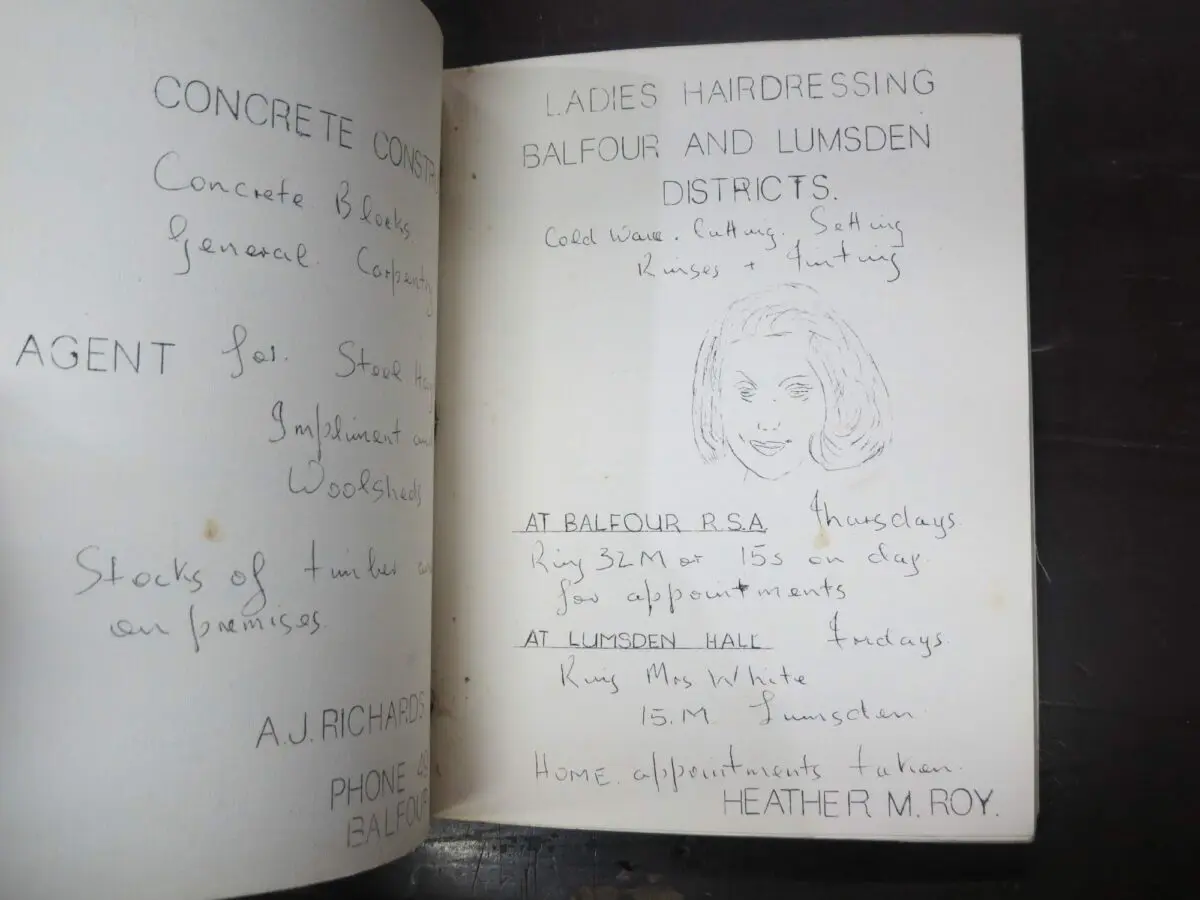 CONCRETE CONSTR
Concrete Blocks.
General Carpentry
AGENT for. Steel Hay
Impliment an
Woolsheds
Stocks of timber a
on premises.
A.J. RICHARDS
PHONE 49
BALFOUR
LADIES HAIRDRESSING
BALFOUR AND LUMSDEN
DISTRICTS.
Cold Wave. Cutting. Setting
Rinses + Tinting
AT BALFOUR R.S.A. Thursdays.
Ring 32M or 15s on day.
for appointments
AT LUMSDEN HALL Fridays.
Ring Mrs White
15.M. Lumsden.
HOME. appointments taken.
HEATHER M. ROY.